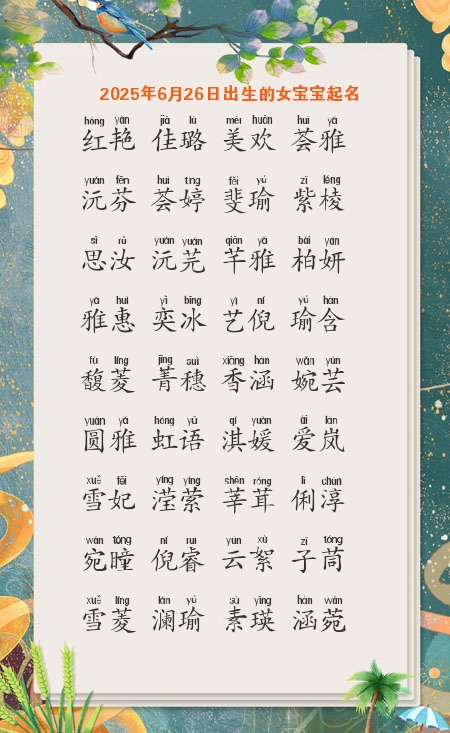 2025年6月26日出生的女宝宝起名
hóng yàn jiā lù měi huān huì yǎ
红艳 佳璐 美欢 荟雅
yuán fēn huì tíng fěi yú zǐ léng
沅芬 荟婷 斐瑜 紫棱
sī rǔ yuán yuán qiān yǎ bǎi yán
思汝 沅芫 芊雅 柏妍
yǎ huì yì bīng yì ní yú hán
雅惠 奕冰 艺倪 瑜含
fù líng jīng suì xiāng hán wǎn yún
馥菱 菁穗 香涵 婉芸
yuán yǎ hóng yǔ qí yuàn ài lán
圆雅 虹语 淇媛 爱岚
xuě fēi yíng yíng shēn róng lì chún
雪妃 滢萦 莘茸 俐淳
wǎn tóng ní ruì yún xù zǐ tóng
宛瞳 倪睿 云絮 子茼
xuě líng lán yú sù yīng hán wǎn
雪菱 澜瑜 素瑛 涵菀